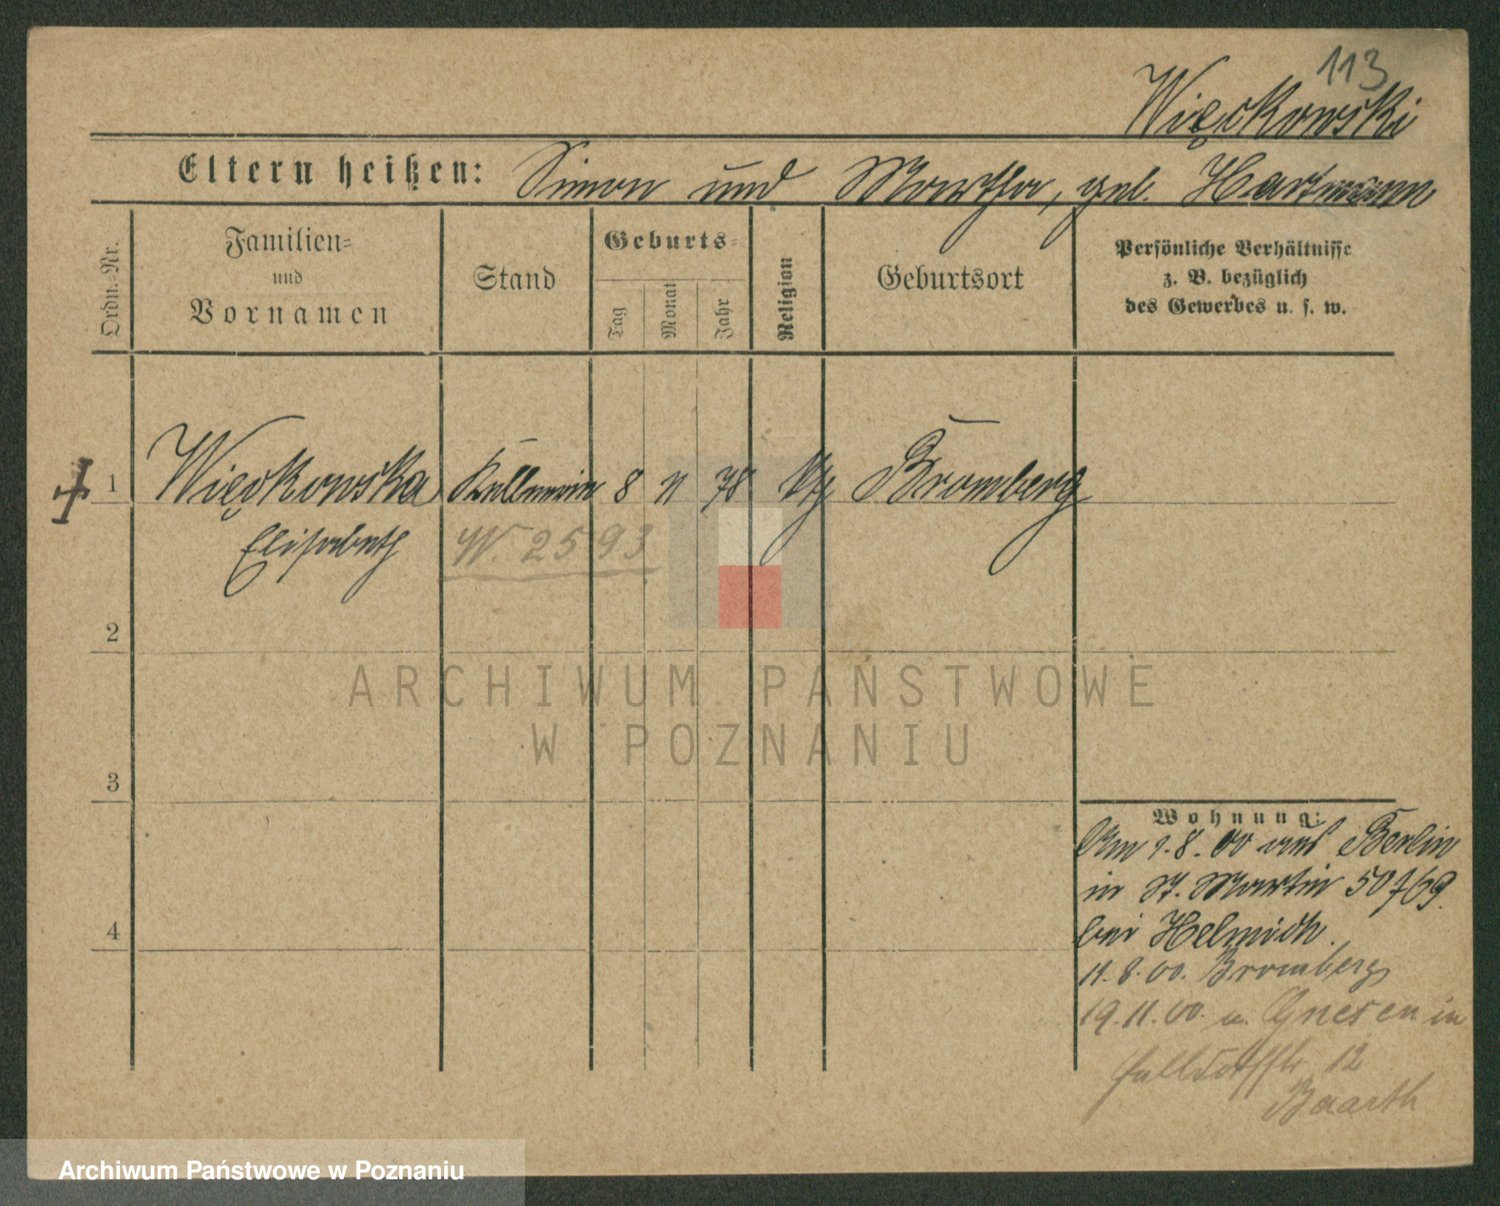 113
Więckowski
Eltern heißen: Simon und Martha, geb. Hartmann
Ordn.-Nr.
Familien-
und
Vornamen
Stand
Geburts-
Tag
Monat
Jahr
Religion
Geburtsort
Persönliche Verhältnisse
z. B. bezüglich
des Gewerbes u. s. w.
1 Więckowska Kellnerin 8 11 78 Bromberg
Elisabeth
W. 2593
2
ARCHIWUM PAŃSTWOWE
W POZNANIU
3
Wohnung:
Am 1.8.00 aus Berlin
in St. Martin 50/69.
bei Helmich.
4
11.8.00. Bromberg
19.11.00. a. Gnesen in
12
Baarth
Archiwum Państwowe w Poznaniu